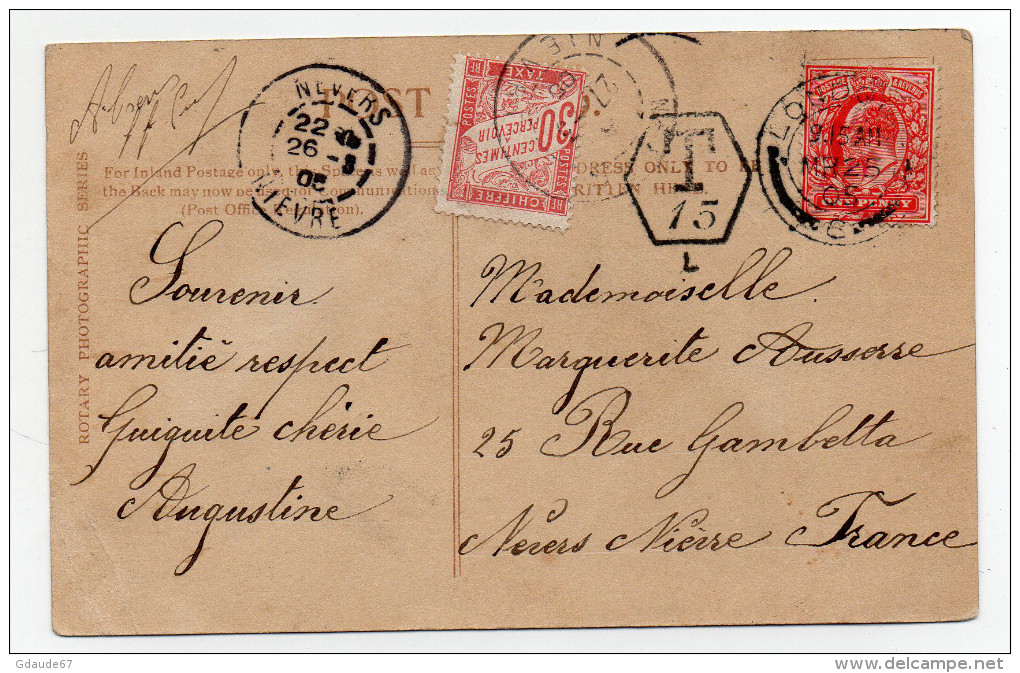 POST
For Inland Postage only, this Space, as well as
the Back may now be used for Communications
(Post Office Regulation).
ADDRESS ONLY TO BE
WRITTEN HERE
ROTARY PHOTOGRAPHIC SERIES
NEVERS
22
26 -3
05
NIEVRE
POSTES
TAXE
30
CENTIMES
A PERCEVOIR
CHIFFRE
27
T
15
L
LONDON
9.15 AM
MR 25
05
POSTAGE
REVENUE
ONE PENNY
Souvenir
amitié respect
Guiguite chérie
Augustine
Mademoiselle
Marguerite Ausserre
25 Rue Gambetta
Nevers Nièvre France
Gdaude67